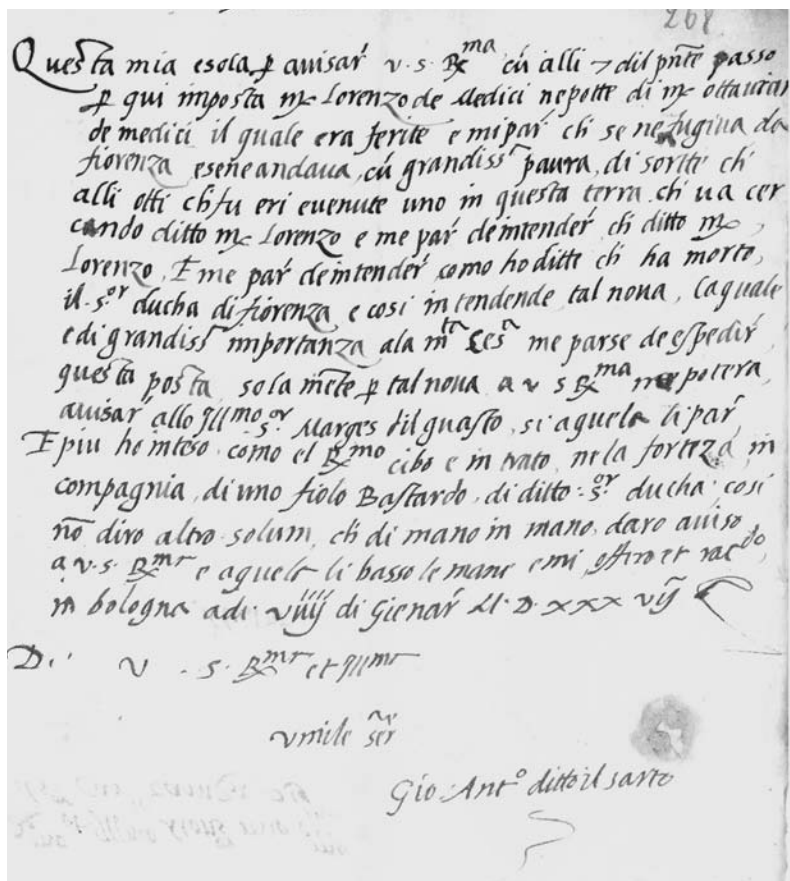 268
Questa mia e sola p̱ avisar v. s. Rma cũ alli 7 dil pñte passo
p̱ qui imposta mx Lorenzo de Medici nepotte di mx ottavian
de medici il quale era ferite e mi par ch se ne fugiva da
fiorenza e sene andava, cũ grandissa paura, di sortte ch
alli otti ch fu eri e venute uno in questa terra ch va cer
cando ditto mx Lorenzo e me par de intender ch ditto mx,
Lorenzo, E me par de intender como ho ditte ch ha morto,
il s.or ducha di fiorenza e cosi intendende tal nova, laquale
e di grandissa importanza ala mta Cesa me parse de espedir,
questa posta sola mẽte p̱ tal nova a v s Rma me potera,
avisar allo Illmo s.or Marges dil guasto, si a quela li par,
E piu ho inteso, como el Rmo cibo e intrato, ne la forteza, in
compagnia, di uno fiolo Bastardo, di ditto .s.or ducha. cosi
nõ diro altro. solum, ch di mano in mano, daro aviso,
a v. s. Rma e a quela li basso le mane e mi, offiro et racdo,
in bologna adi. viiij di Gienar M. D. xxx vij
D. v. s. Rma et Illma
umile ser
Gio. Anto ditto il sarto